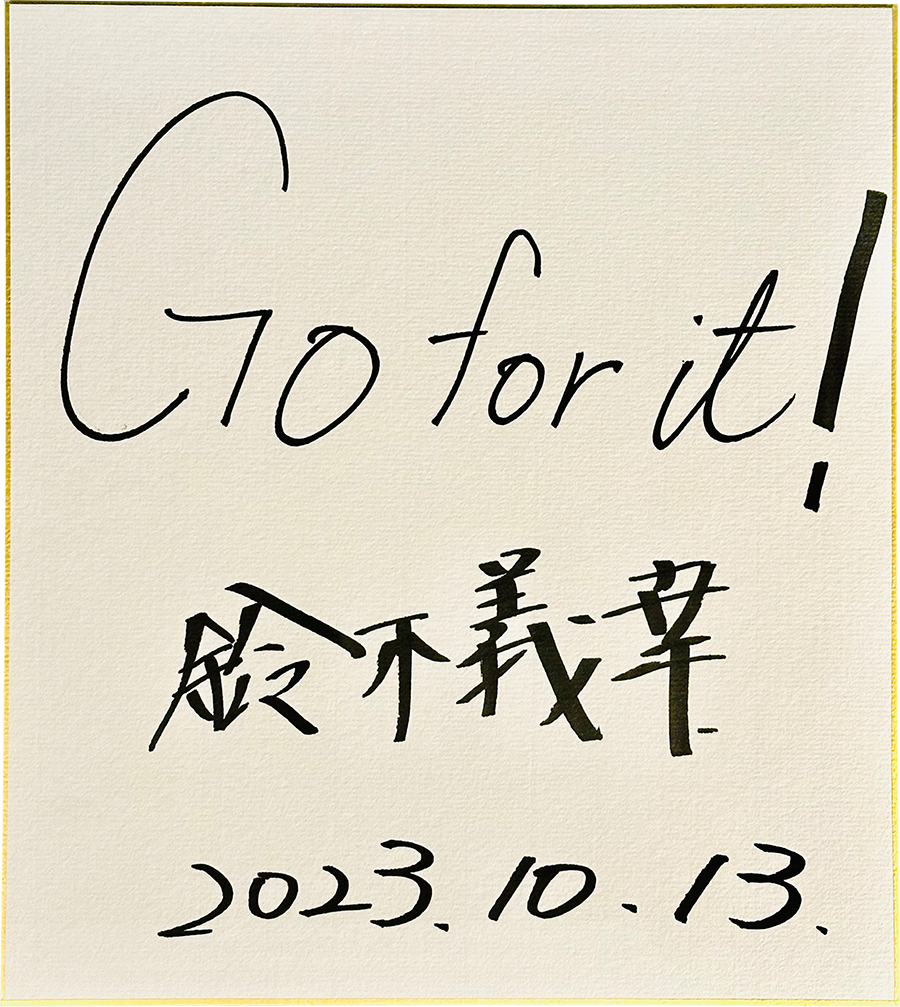 Go for it!
鈴木義幸
2023.10.13.